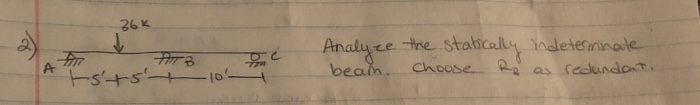 36K
2)
Analyze the statically indeterminate
A B C
beam. Choose R_B as redundant.
5' 5' 10'